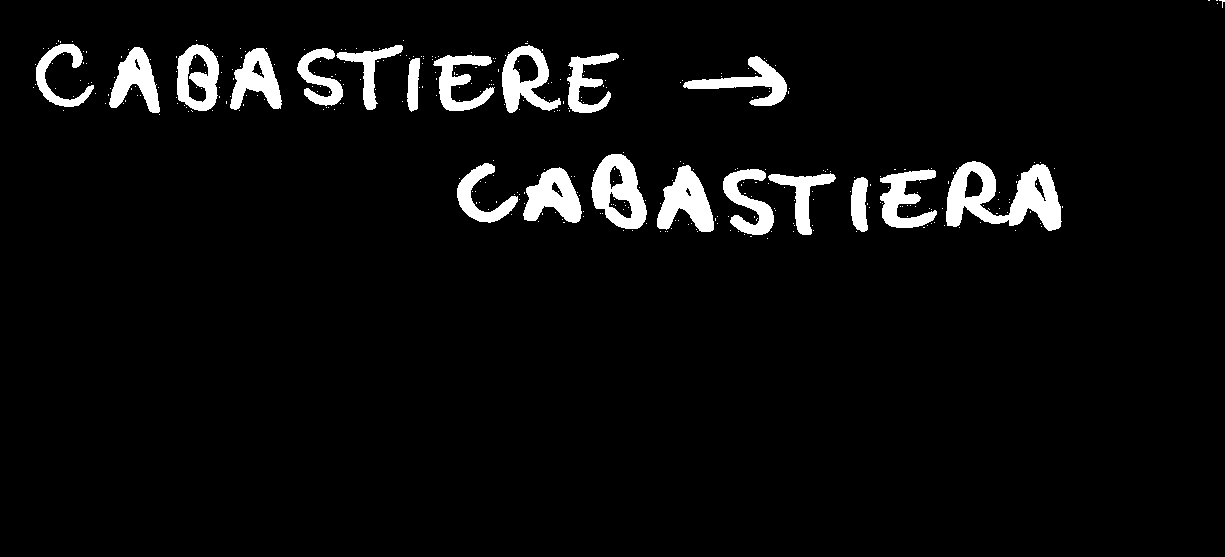 CABASTIERE →
CABASTIERA